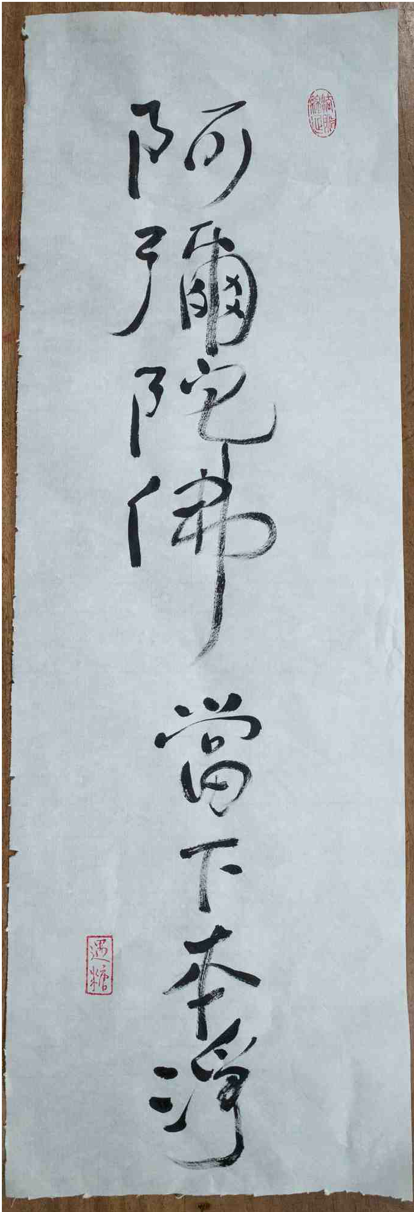 阿彌陀佛 當下本淨
遇糖